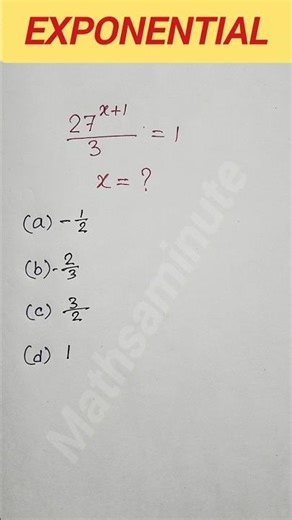 EXPONENTIAL
27^(x+1)/3 = 1
x = ?
(a) -1/2
(b) -2/3
(c) 3/2
(d) 1
Mathsaminute